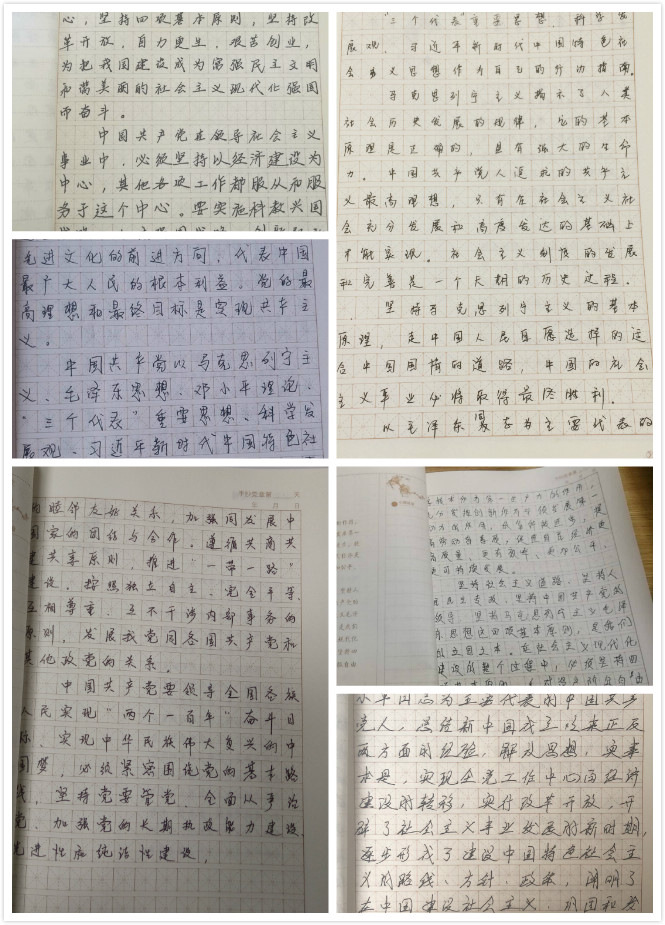 心，坚持四项基本原则，坚持改
革开放，自力更生，艰苦创业，
为把我国建设成为富强民主文明
和谐美丽的社会主义现代化强国
而奋斗。
中国共产党在领导社会主义
事业中，必须坚持以经济建设为
中心，其他各项工作都服从和服
务于这个中心。要实施科教兴国
先进文化的前进方向，代表中国
最广大人民的根本利益。党的最
高理想和最终目标是实现共产主
义。
中国共产党以马克思列宁主
义、毛泽东思想、邓小平理论、
“三个代表”重要思想、科学发
展观、习近平新时代中国特色社
的睦邻友好关系，加强同发展中
国家的团结与合作。遵循共商共
建共享原则，推进“一带一路”
建设。按照独立自主、完全平等、
互相尊重、互不干涉内部事务的
原则，发展我党同各国共产党和
其他政党的关系。
中国共产党要领导全国各族
人民实现“两个一百年”奋斗目
标、实现中华民族伟大复兴的中
国梦，必须紧密围绕党的基本路
线，坚持党要管党、全面从严治
党，加强党的长期执政能力建设、
先进性和纯洁性建设，
“三个代表”重要思想、科学发
展观、习近平新时代中国特色社
会主义思想作为自己的行动指南。
马克思列宁主义揭示了人类
社会历史发展的规律，它的基本
原理是正确的，具有强大的生命
力。中国共产党人追求的共产主
义最高理想，只有在社会主义社
会充分发展和高度发达的基础上
才能实现。社会主义制度的发展
和完善是一个长期的历史过程。
坚持马克思列宁主义的基本
原理，走中国人民自愿选择的适
合中国国情的道路，中国的社会
主义事业必将取得最终胜利。
以毛泽东同志为主要代表的
更可持续发展。
坚持社会主义道路、坚持人
民民主专政、坚持中国共产党的
领导、坚持马克思列宁主义毛泽
东思想这四项基本原则，是我们
的立国之本。在社会主义现代化
建设的整个过程中，必须坚持四
小平同志为主要代表的中国共产
党人，总结新中国成立以来正反
两方面的经验，解放思想，实事
求是，实现全党工作中心向经济
建设的转移，实行改革开放，开
辟了社会主义事业发展的新时期，
逐步形成了建设中国特色社会主
义的路线、方针、政策，阐明了
在中国建设社会主义、巩固和发